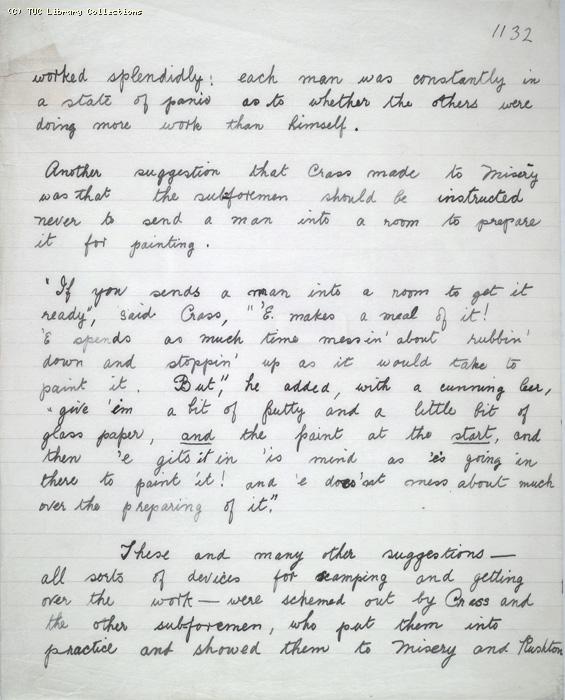 (C) TUC Library Collections
1132
worked splendidly: each man was constantly in
a state of panic as to whether the others were
doing more work than himself.
Another suggestion that Crass made to Misery
was that the subforemen should be instructed
never to send a man into a room to prepare
it for painting.
"If you sends a man into a room to get it
ready", said Crass, "'E makes a meal of it!
'E spends as much time messin' about rubbin'
down and stoppin' up as it would take to
paint it. But", he added, with a cunning leer,
"give 'em a bit of putty and a little bit of
glass paper, and the paint at the start, and
then 'e gits it in 'is mind as 'e's going in
there to paint it! and 'e does'nt mess about much
over the preparing of it."
These and many other suggestions —
all sorts of devices for scamping and getting
over the work — were schemed out by Crass and
the other subforemen, who put them into
practice and showed them to Misery and Rushton